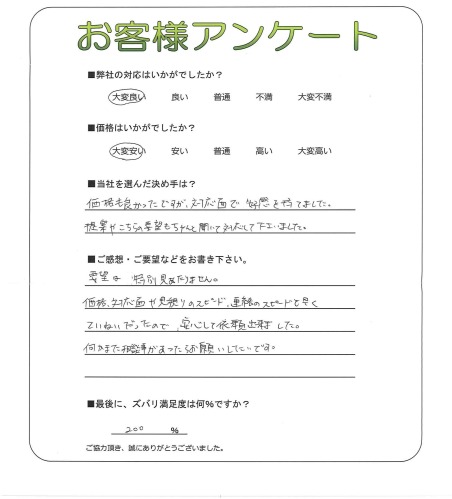 お客様アンケート
■弊社の対応はいかがでしたか?
大変良い 良い 普通 不満 大変不満
■価格はいかがでしたか?
大変安い 安い 普通 高い 大変高い
■当社を選んだ決め手は?
価格も良かったですが、対応面で好感を持てました。
提案やこちらの要望もちゃんと聞いて対応して下さいました。
■ご感想・ご要望などをお書き下さい。
要望は特別見あたりません。
価格、対応面や見積りのスピード、連絡のスピードも早く
ていねいだったので、安心して依頼出来ました。
何かまた相談事があったらお願いしたいです。
■最後に、ズバリ満足度は何%ですか?
200 %
ご協力頂き、誠にありがとうございました。